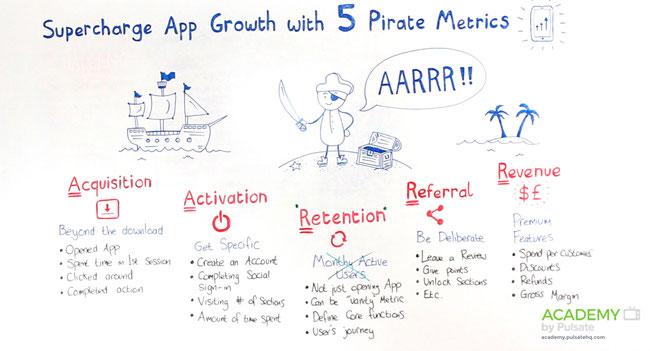 Supercharge App Growth with 5 Pirate Metrics
AARRR!!
Acquisition
Beyond the download
• Opened App
• Spent time in 1st Session
• Clicked around
• Completed action
Activation
Get Specific
• Create an Account
• Completing Social
Sign-in
• Visiting # of Sections
• Amount of time spent
"Retention"
Monthly Active
Users
• Not just opening App
• Can be "Vanity" Metric
• Define Core functions
• User's journey
Referral
Be Deliberate
• Leave a Review
• Give points
• Unlock Sections
• Etc.
Revenue
$£
Premium
Features
• Spend per Customer
• Discounts
• Refunds
• Gross Margin
ACADEMY
by Pulsate
academy.pulsatehq.com